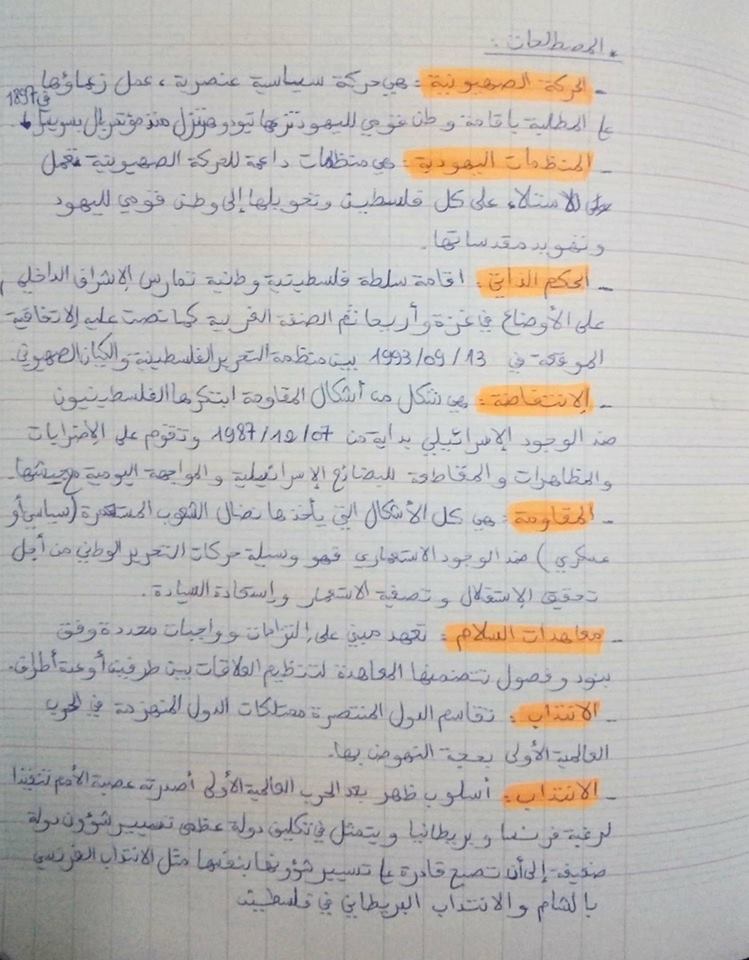 * المصطلحات :
- الحركة الصهيونية : هي حركة سياسية عنصرية ، عمل زعماؤها
على المطلبة بإقامة وطن قومي لليهود تزعمها تيودور هرتزل منذ مؤتمر بال بسويسرا في 1897
- المنظمات اليهودية : هي منظمات داعمة للحركة الصهيونية تعمل
على الاستلاء على كل فلسطين وتحويلها إلى وطن قومي لليهود
وتهويد مقدساتها .
- الحكم الذاتي : اقامة سلطة فلسطينية وطنية تمارس الإشراف الداخلي
على الأوضاع في غزة وأريحا ثم الضفة الغربية كما نصت عليه الإتفاقية
الموقعة في 13 / 09 / 1993 بين منظمة التحرير الفلسطينية والكيان الصهيوني .
- الإنتفاضة : هي شكل من أشكال المقاومة ابتكرها الفلسطينيون
ضد الوجود الإسرائيلي بداية من 07 / 12 / 1987 وتقوم على الإضرابات
والمظاهرات والمقاطعة للبضائع الإسرائيلية والمواجهة اليومية مع جيشها .
- المقاومة : هي كل الأشكال التي يأخذها نضال الشعوب المستعمرة (سياسي أو
عسكري) ضد الوجود الاستعماري فهو وسيلة حركات التحرير الوطني من أجل
تحقيق الإستقلال وتصفية الاستعمار وإستعادة السيادة .
- معاهدات السلام : تعهد مبني على إلتزامات وواجبات محددة وفق
بنود وفصول تتضمنها المعاهدة لتنظيم العلاقات بين طرفين أو عدة أطراف .
- الانتداب : تقاسم الدول المنتصرة ممتلكات الدول المنهزمة في الحرب
العالمية الأولى بحجة النهوض بها .
- الانتداب : أسلوب ظهر بعد الحرب العالمية الأولى أصدرته عصبة الأمم تنفيذا
لرغبة فرنسا وبريطانيا ويتمثل في تكليف دولة عظمى تسيير شؤون دولة
ضعيفة إلى أن تصبح قادرة على تسيير شؤونها بنفسها مثل الانتداب الفرنسي
بالشام والانتداب البريطاني في فلسطين